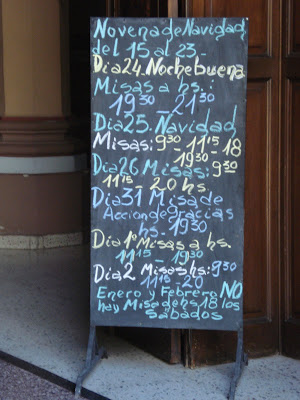 Novena de Navidad
del 15 al 23.-
Dia 24. Nochebuena
Misas a hs.:
19³⁰ - 21³⁰
Dia 25. Navidad
Misas: 9³⁰ - 11¹⁵ - 18
19³⁰ -
Dia 26 Misas: 9³⁰
11¹⁵ - 20 hs.
Dia 31 Misa de
Accion de gracias
hs - 19³⁰
Dia 1º Misas a hs.
11¹⁵ - 19³⁰
Dia 2 Misas hs: 9³⁰
11¹⁵ - 20
Enero y Febrero NO
hay Misa de hs 18 los
Sábados